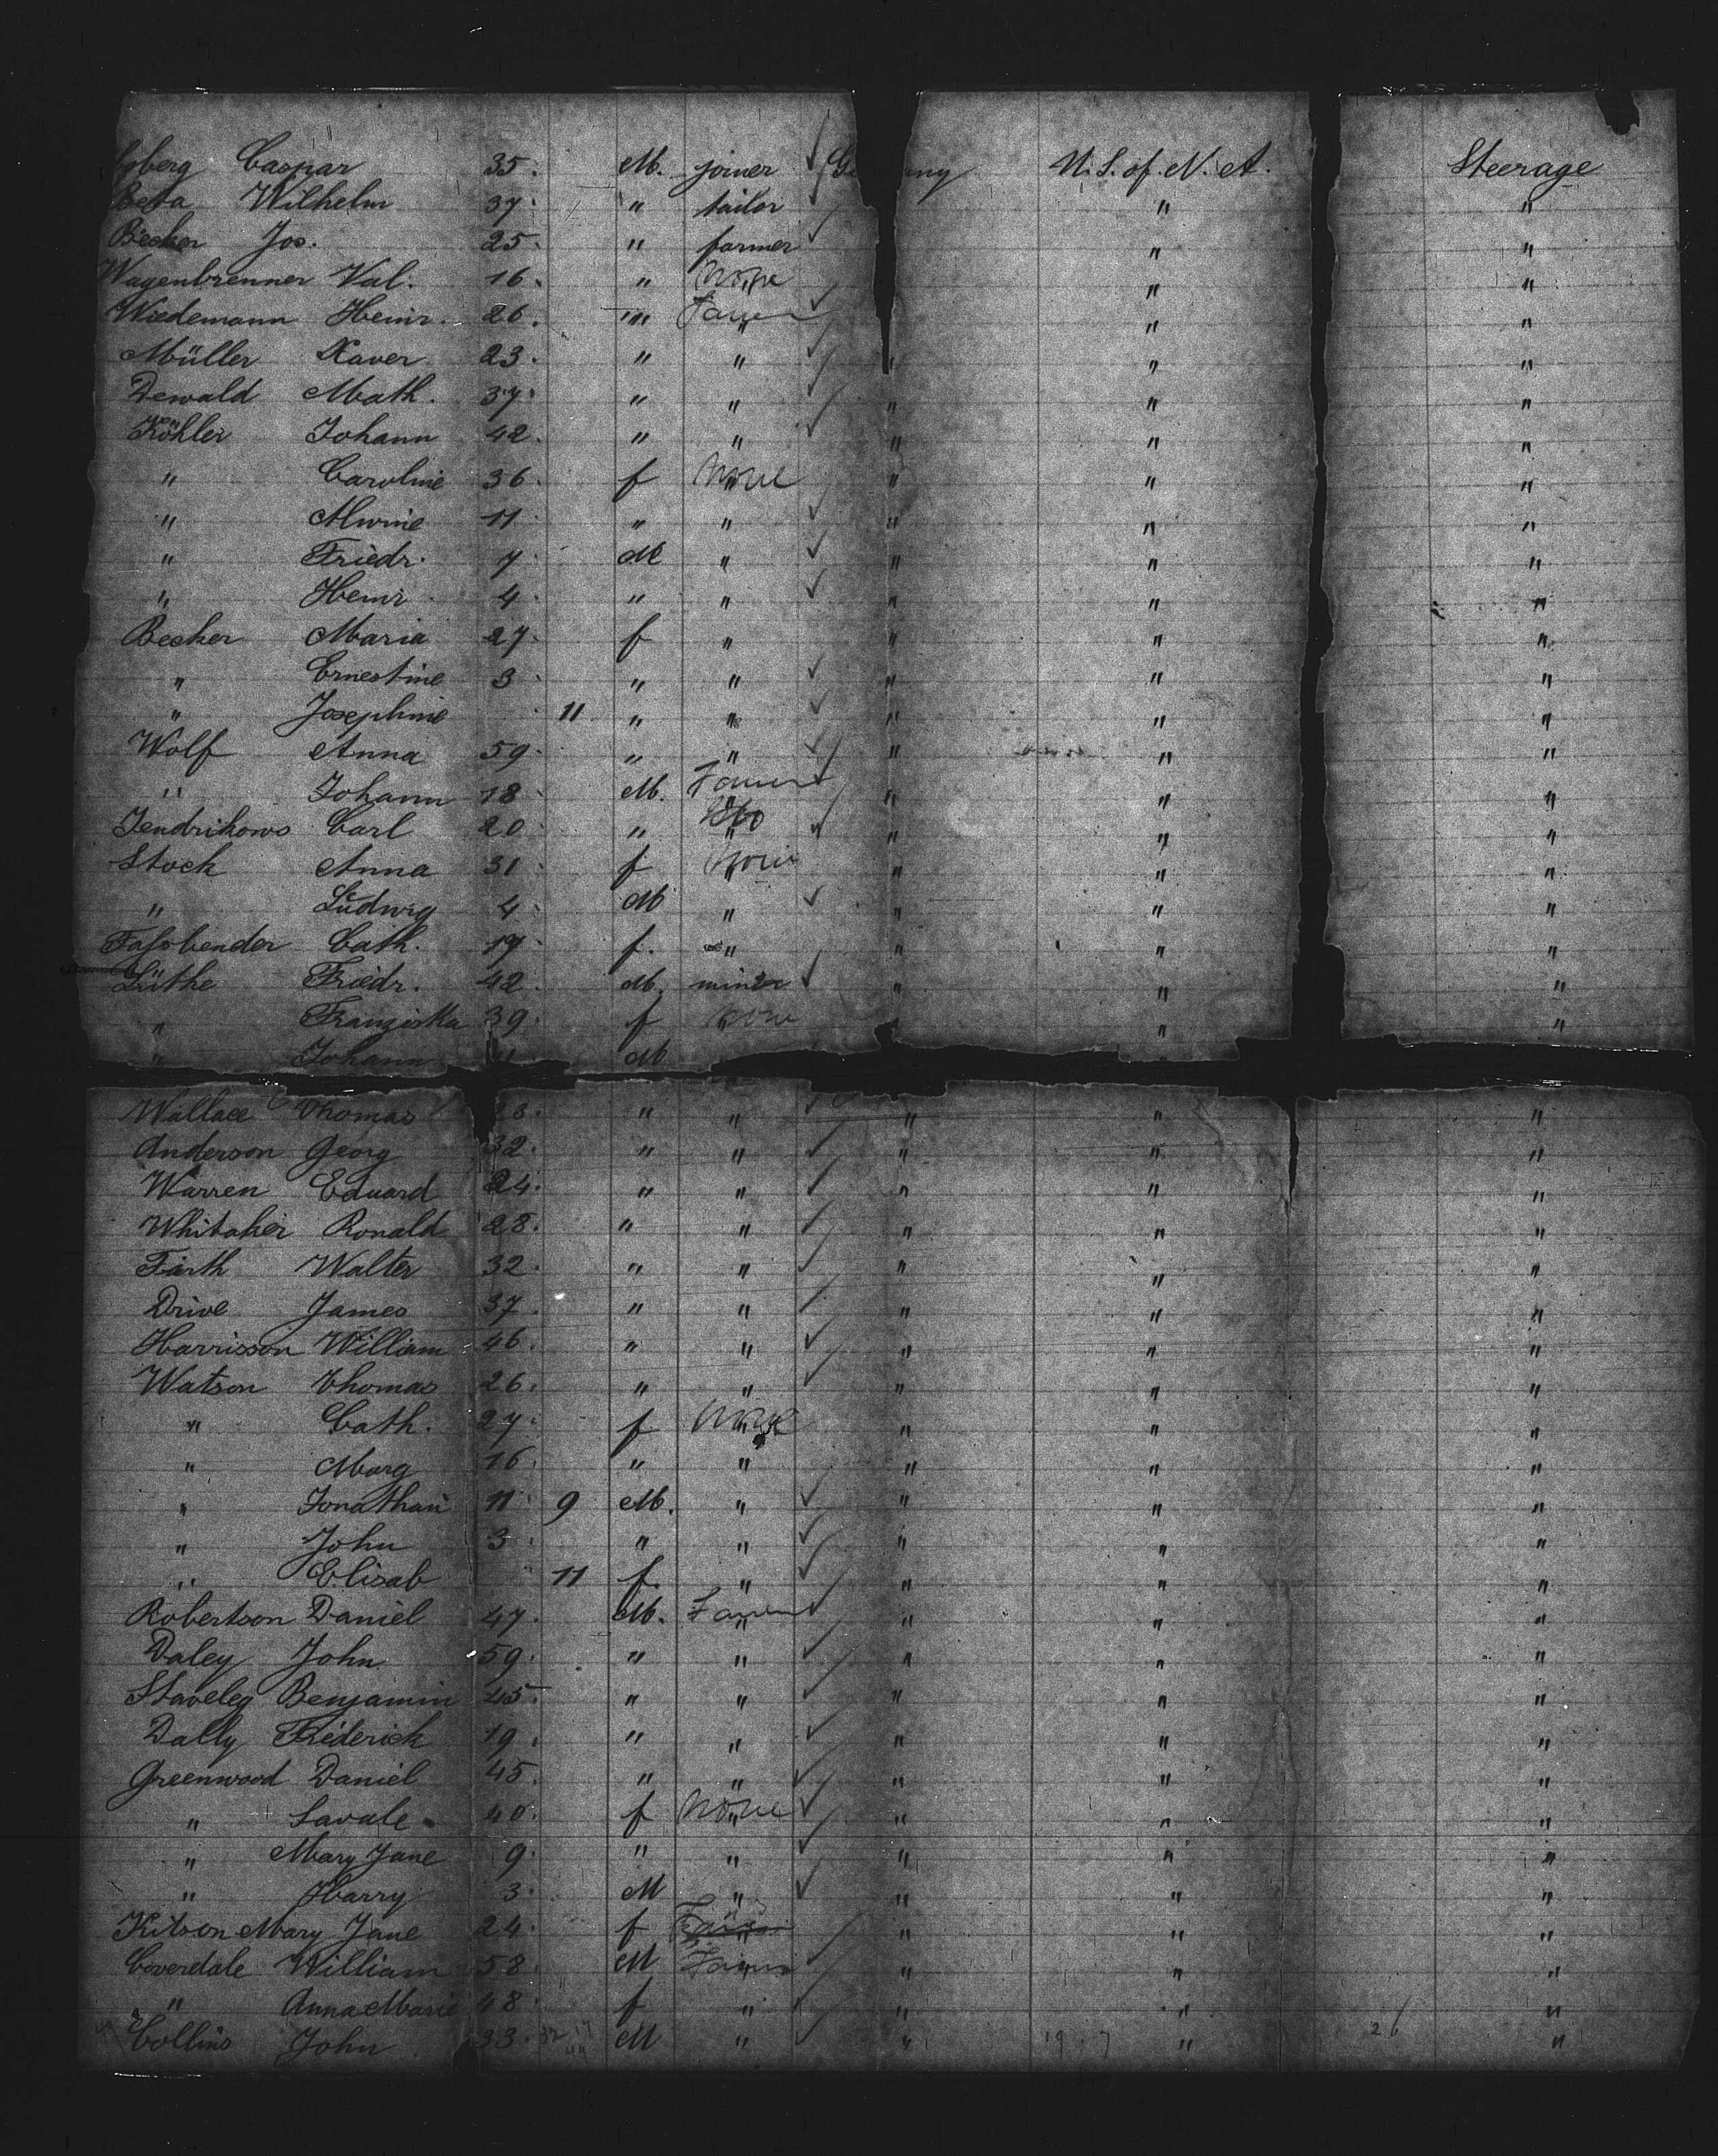 Caspar 35. M. joiner U.S. of N. A. Steerage
Beta Wilhelm 37. " tailor " "
Becker Jos. 25. " farmer " "
Wagenbrenner Val. 16. " None " "
Wiedemann Heinr. 26. " Farmer " "
Müller Xaver 23. " " " " "
Dewald Math. 37. " " " " "
Köhler Johann 42. " " " " "
" Caroline 36. f None " " "
" Alwine 11. " " " " "
" Friedr. 7. M " " " "
" Heinr. 4. " " " " "
Becker Maria 27. f " " " "
" Ernestine 3 " " " " "
" Josephine 11 " " " " "
Wolf Anna 59. " " " " "
" Johann 18 M. Farmer " " "
Jendrikows Carl 20. " " " "
Stock Anna 31 f None " " "
" Ludwig 4. M " " " "
Fassbender Cath. 19. f. " " " "
Lüthe Friedr. 42. M. miner " " "
" Franziska 39. f None " "
" Johann M
Wallace Thomas 23. " " " " "
Anderson Georg 32. " " " " "
Warren Eduard 24. " " " " "
Whitaker Ronald 28. " " " " "
Firth Walter 32. " " " " "
Drive James 37. " " " " "
Harrisson William 46. " " " " "
Watson Thomas 26. " " " " "
" Cath. 27. f None " " "
" Marg 16. " " " " "
" Jonathan 11 9 M. " " " "
" John 3 " " " " "
" Elisab 11 f. " " " "
Robertson Daniel 47. M. Farmer " " "
Daley John 59. " " " " "
Staveley Benjamin 45. " " " " "
Dally Frederick 19. " " " " "
Greenwood Daniel 45. " " " " "
" Savale 40. f None " " "
" Mary Jane 9. " " " " "
" Harry 3. M " " " "
Kitson Mary Jane 24. f " " "
Coverdale William 58 M Farmer " " "
" Anna Marie 48. f " " " "
Collins John 33. M " " " "